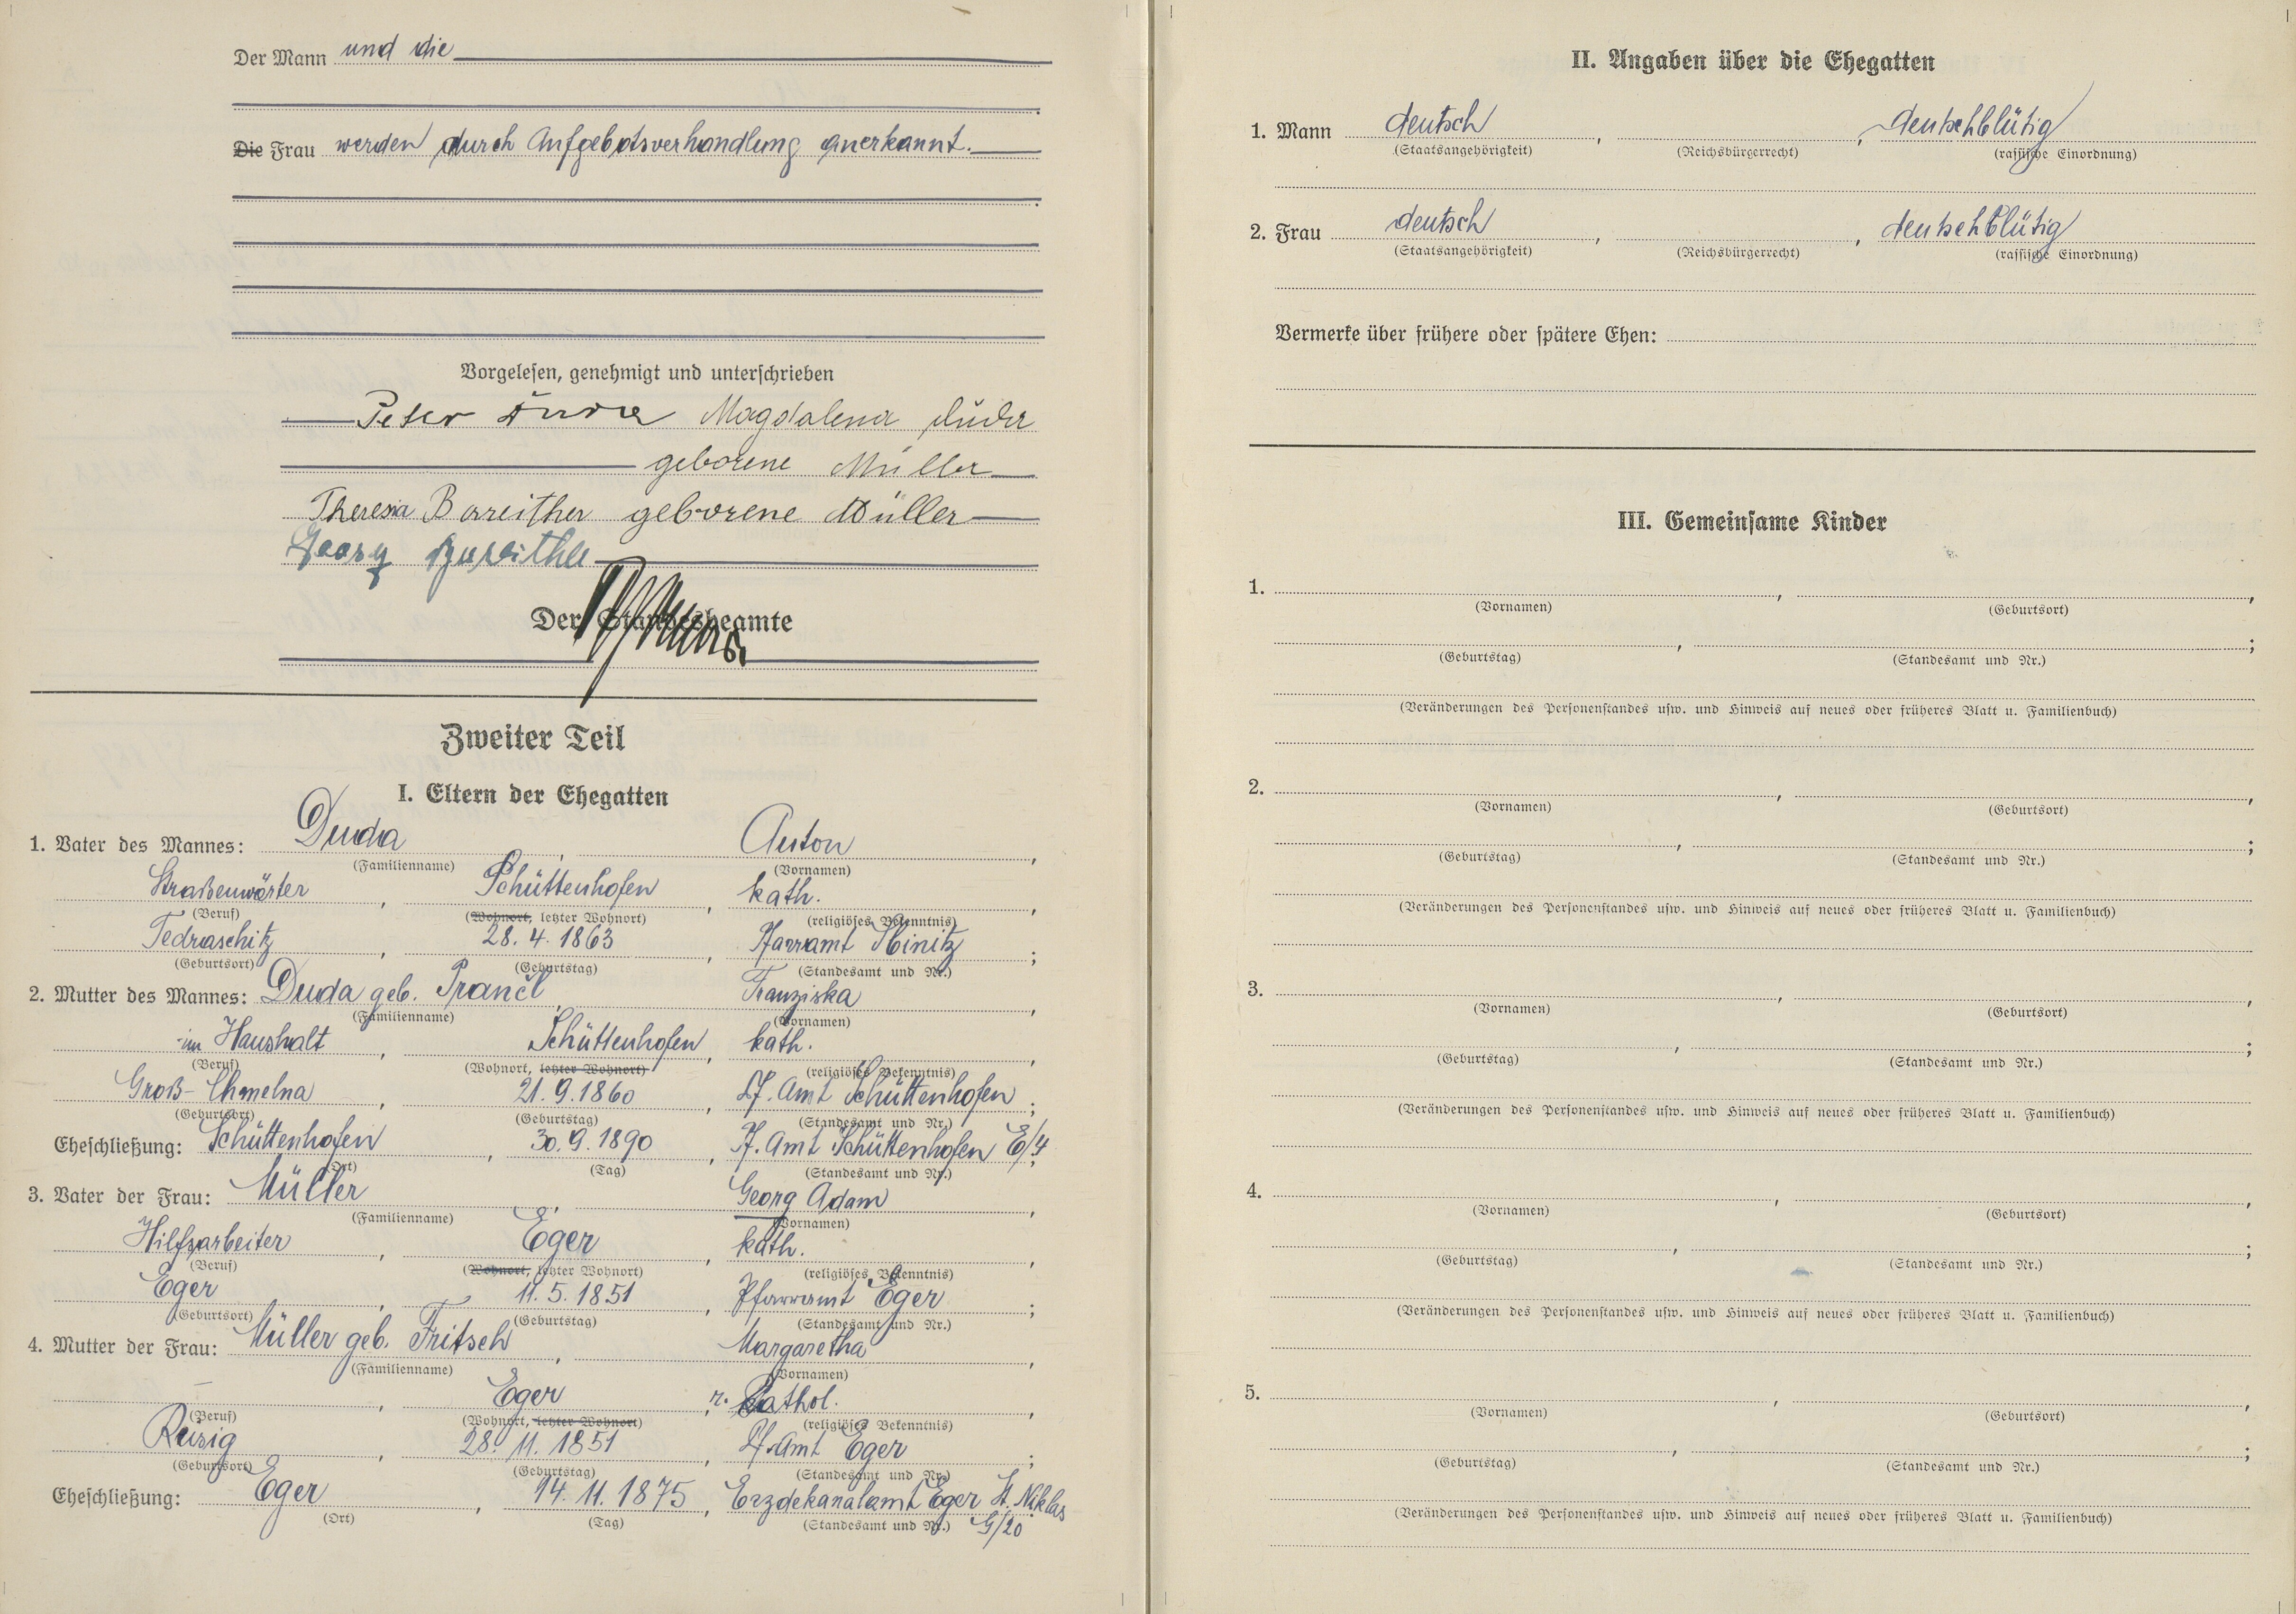 Der Mann und die
Die Frau werden durch Aufgebotsverhandlung anerkannt.
Vorgelesen, genehmigt und unterschrieben
Peter Duda Magdalena Duda
geborene Müller
Theresia Bareither geborene Müller
Georg Bareither
Der Standesbeamte
Zweiter Teil
I. Eltern der Ehegatten
1. Vater des Mannes: Duda, Anton,
(Familienname) (Vornamen)
Straßenwärter, Schüttenhofen, kath.,
(Beruf) (Wohnort, letzter Wohnort) (religiöses Bekenntnis)
Tedraschitz, 28. 4. 1863, Pfarramt ;
(Geburtsort) (Geburtstag) (Standesamt und Nr.)
2. Mutter des Mannes: Duda geb. Prančl, Franziska,
(Familienname) (Vornamen)
im Haushalt, Schüttenhofen, kath.,
(Beruf) (Wohnort, letzter Wohnort) (religiöses Bekenntnis)
Groß-Chmelna, 21. 9. 1860, Pf. Amt Schüttenhofen;
(Geburtsort) (Geburtstag) (Standesamt und Nr.)
Eheschließung: Schüttenhofen, 30. 9. 1890, Pf. Amt Schüttenhofen E/4;
(Ort) (Tag) (Standesamt und Nr.)
3. Vater der Frau: Müller, Georg Adam,
(Familienname) (Vornamen)
Hilfsarbeiter, Eger, kath.,
(Beruf) (Wohnort, letzter Wohnort) (religiöses Bekenntnis)
Eger, 11. 5. 1851, Pfarramt Eger;
(Geburtsort) (Geburtstag) (Standesamt und Nr.)
4. Mutter der Frau: Müller geb. Fritsch, Margaretha,
(Familienname) (Vornamen)
–, Eger, r. kathol.,
(Beruf) (Wohnort, letzter Wohnort) (religiöses Bekenntnis)
Reisig, 28. 11. 1851, Pf. Amt Eger;
(Geburtsort) (Geburtstag) (Standesamt und Nr.)
Eheschließung: Eger, 14. 11. 1875, Erzdekanalamt Eger St. Niklas
(Ort) (Tag) (Standesamt und Nr.) G/20
II. Angaben über die Ehegatten
1. Mann deutsch, , deutschblütig
(Staatsangehörigkeit) (Reichsbürgerrecht) (rassische Einordnung)
2. Frau deutsch, , deutschblütig
(Staatsangehörigkeit) (Reichsbürgerrecht) (rassische Einordnung)
Vermerke über frühere oder spätere Ehen:
III. Gemeinsame Kinder
1. , ,
(Vornamen) (Geburtsort)
, ;
(Geburtstag) (Standesamt und Nr.)
(Veränderungen des Personenstandes usw. und Hinweis auf neues oder früheres Blatt u. Familienbuch)
2. , ,
(Vornamen) (Geburtsort)
, ;
(Geburtstag) (Standesamt und Nr.)
(Veränderungen des Personenstandes usw. und Hinweis auf neues oder früheres Blatt u. Familienbuch)
3. , ,
(Vornamen) (Geburtsort)
, ;
(Geburtstag) (Standesamt und Nr.)
(Veränderungen des Personenstandes usw. und Hinweis auf neues oder früheres Blatt u. Familienbuch)
4. , ,
(Vornamen) (Geburtsort)
, ;
(Geburtstag) (Standesamt und Nr.)
(Veränderungen des Personenstandes usw. und Hinweis auf neues oder früheres Blatt u. Familienbuch)
5. , ,
(Vornamen) (Geburtsort)
, ;
(Geburtstag) (Standesamt und Nr.)
(Veränderungen des Personenstandes usw. und Hinweis auf neues oder früheres Blatt u. Familienbuch)